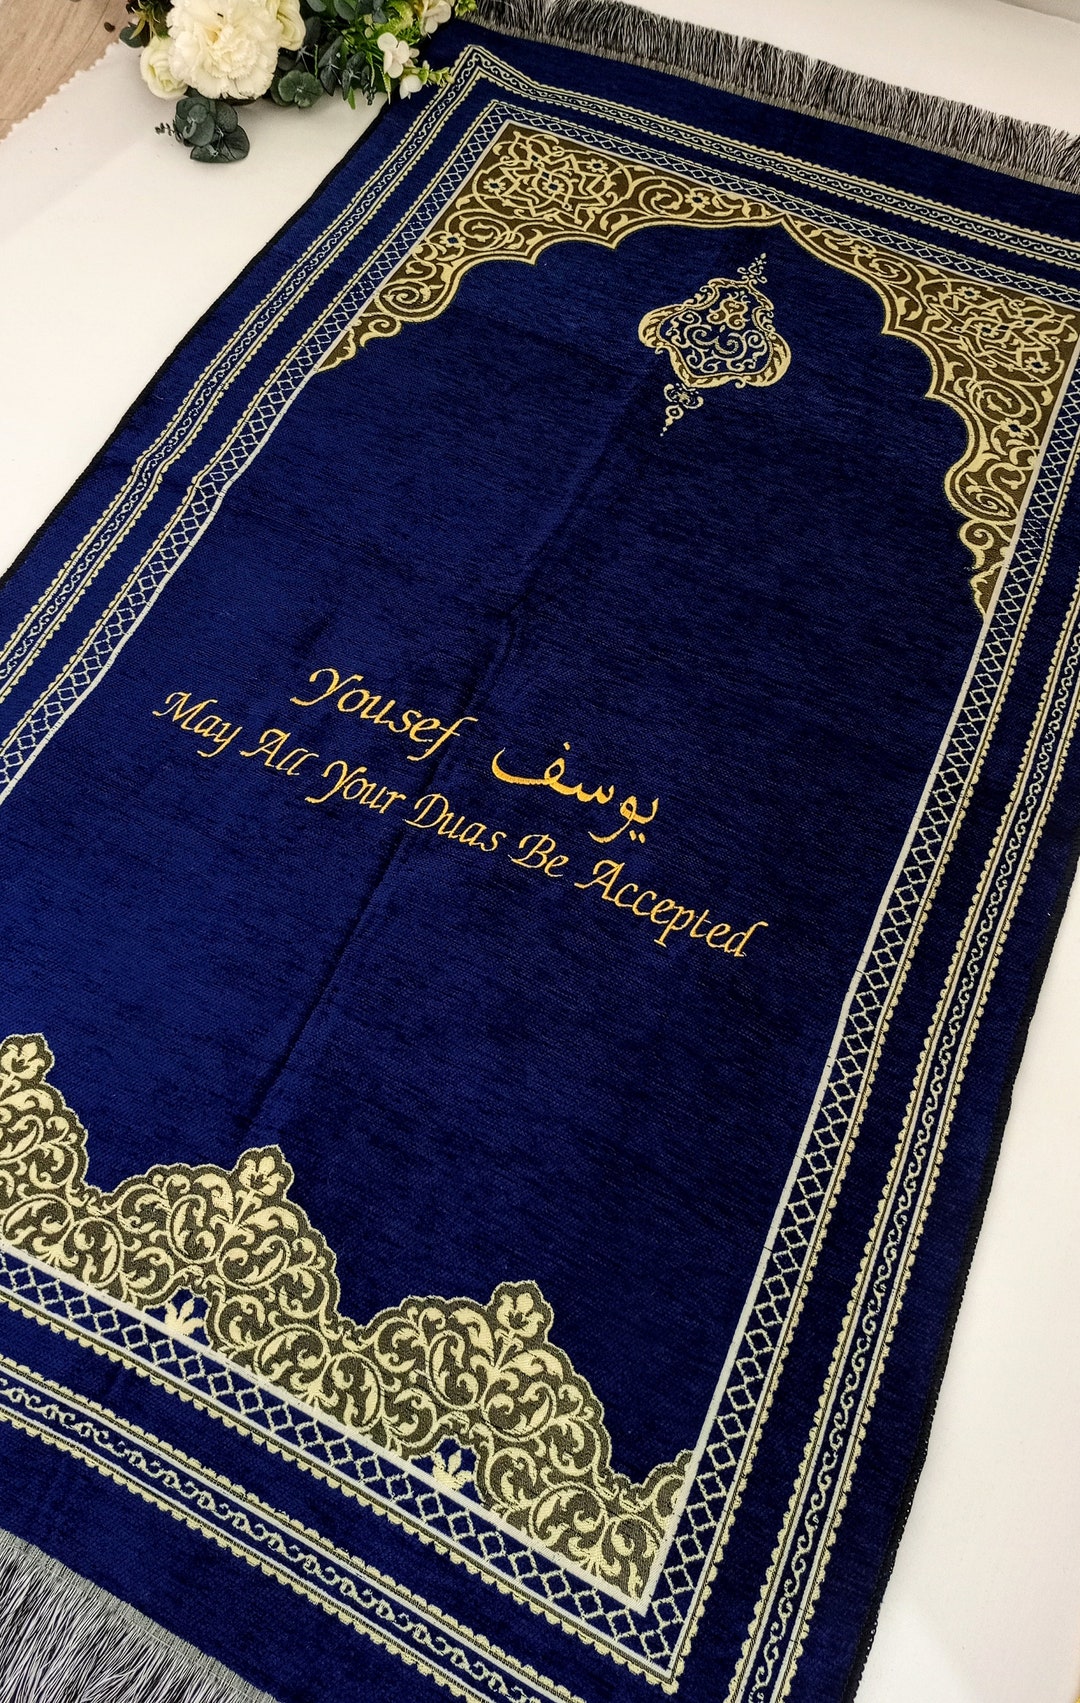 Yousef يوسف
May All Your Duas Be Accepted